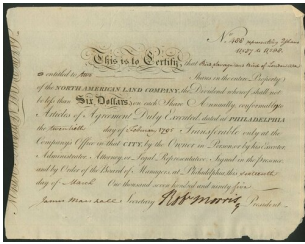 This is to Certify, that
is entitled to two Shares in the entire Property
of the NORTH AMERICAN LAND COMPANY, the Dividend whereof shall not
be less than Six Dollars on each Share Annually, conformably to
Articles of Agreement Duly Executed dated at PHILADELPHIA
the day of February 1795 Transferable only at the
Company's Office in that CITY, by the Owner in Person or by his Executor
Administrator, Attorney or Legal Representative Signed in the presence
and by Order of the Board of Managers at Philadelphia this sixteenth
day of March One thousand seven hundred and ninety five
James Marshall Secretary Rob Morris President